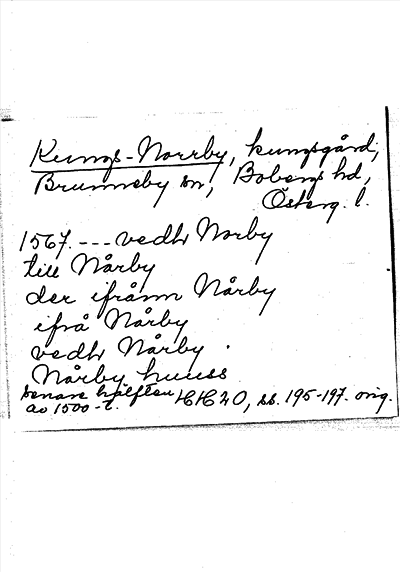 Kungs-Norrby, kungsgård,
Brunneby sn, Bobergs hd,
Österg. l.
1567. --- vedh Norby
till Nårby
der ifrånn Nårby
ifrå Nårby
vedh Nårby
Nårby huuss
Senare hälften
av 1500-t. HH 20, ss. 195-197. orig.